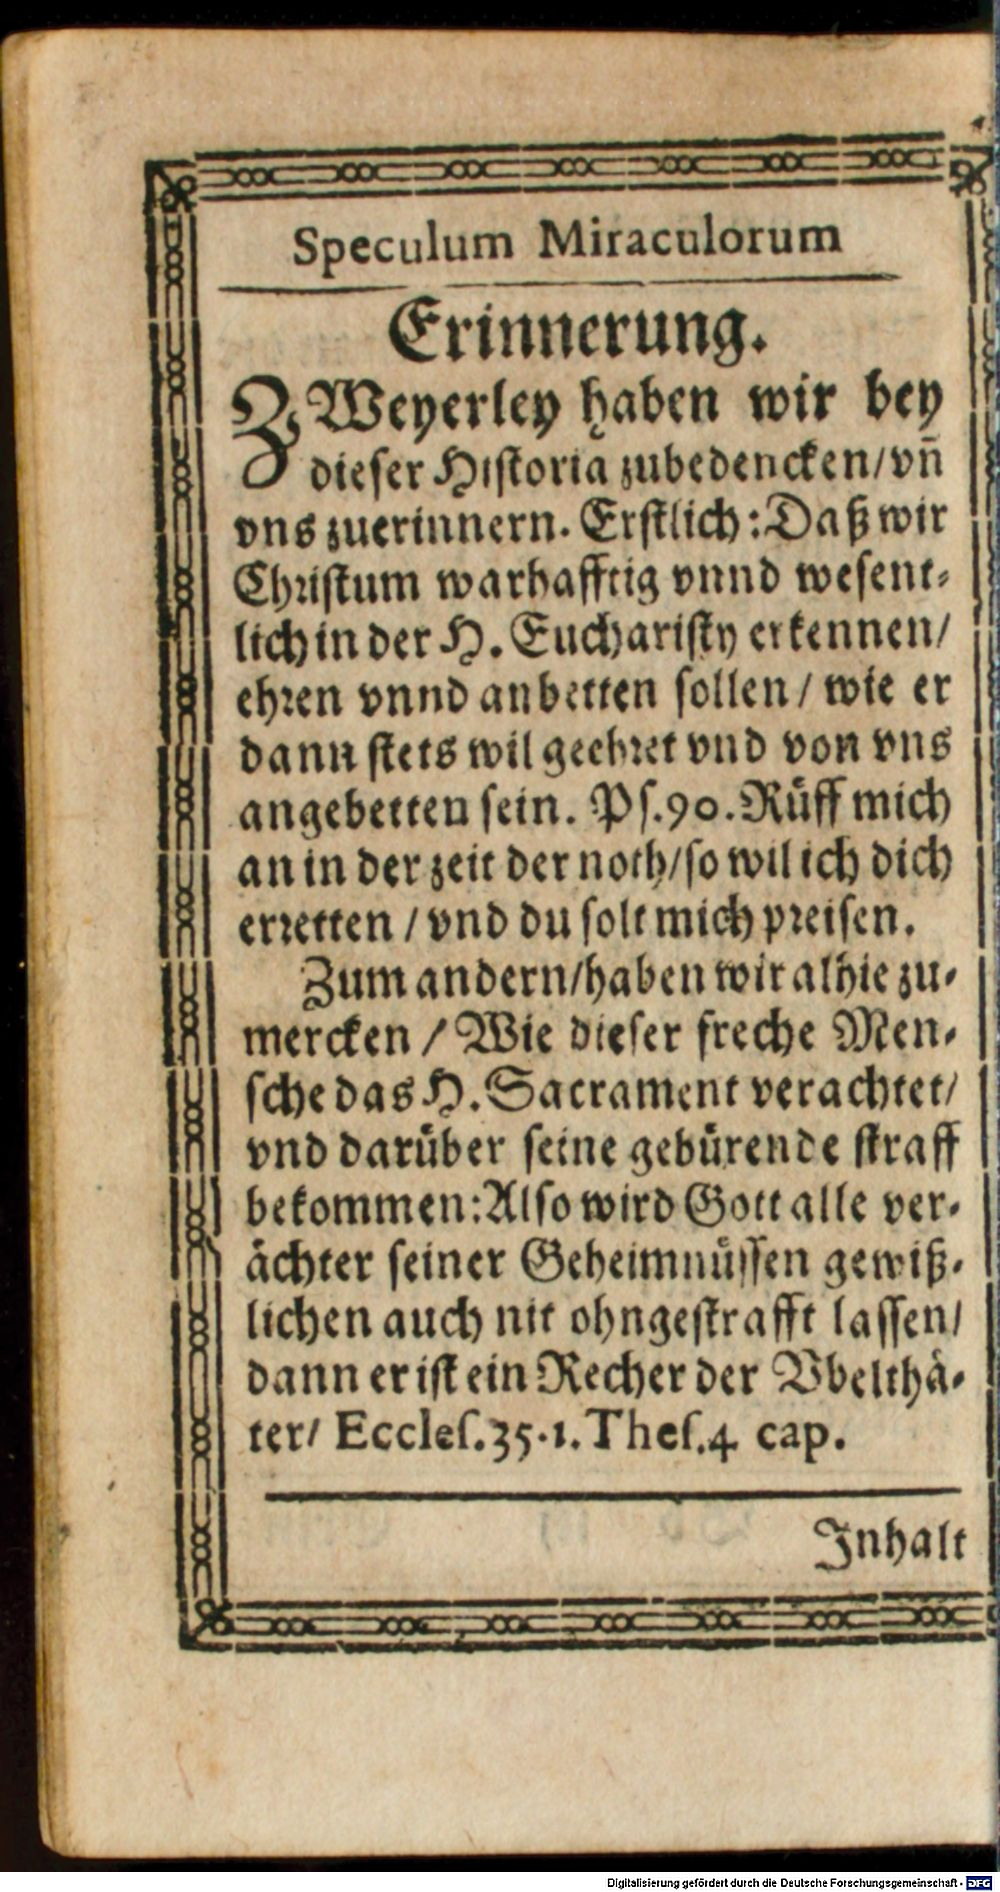 Speculum Miraculorum
Erinnerung.
ZWeyerley haben wir bey
dieser Historia zubedencken/vñ
vns zuerinnern. Erstlich: Daß wir
Christum warhafftig vnnd wesent-
lich in der H. Eucharisty erkennen/
ehren vnnd anbetten sollen/ wie er
dann stets wil geehret vnd von vns
angebetten sein. Ps.90. Rüff mich
an in der zeit der noth/so wil ich dich
erretten / vnd du solt mich preisen.
Zum andern/haben wir alhie zu-
mercken / Wie dieser freche Men-
sche das H. Sacrament verachtet/
vnd darüber seine gebürende straff
bekommen: Also wird Gott alle ver-
ächter seiner Geheimnüssen gewiß-
lichen auch nit ohngestrafft lassen/
dann er ist ein Recher der Vbelthä-
ter/ Eccles.35.1. Thes.4 cap.
Inhalt
Digitalisierung gefördert durch die Deutsche Forschungsgemeinschaft - DFG